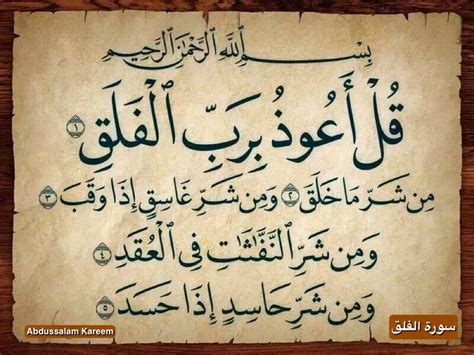 بِسْمِ ٱللَّهِ ٱلرَّحْمَٰنِ ٱلرَّحِيمِ
قُلْ أَعُوذُ بِرَبِّ ٱلْفَلَقِ ١
مِن شَرِّ مَا خَلَقَ ٢ وَمِن شَرِّ غَاسِقٍ إِذَا وَقَبَ ٣
وَمِن شَرِّ ٱلنَّفَّٰثَٰتِ فِى ٱلْعُقَدِ ٤
وَمِن شَرِّ حَاسِدٍ إِذَا حَسَدَ ٥
سورة الفلق
Abdussalam Kareem